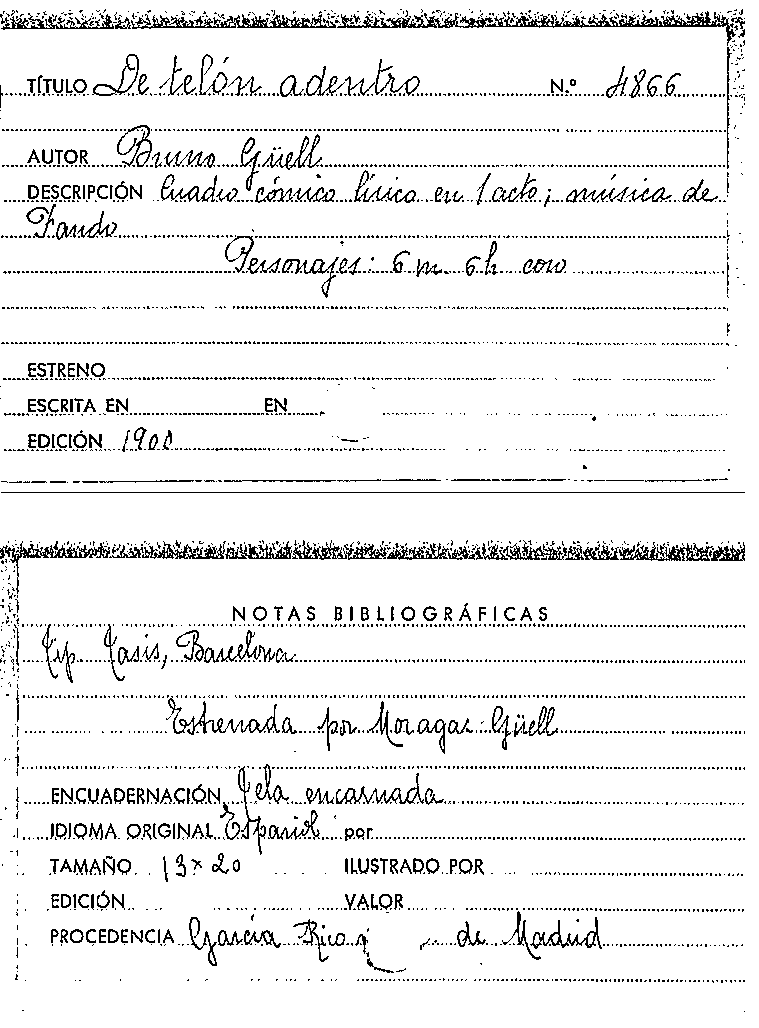 TÍTULO De telón adentro N.º 4866
AUTOR Bruno Güell
DESCRIPCIÓN Cuadro cómico lírico en 1 acto; música de
Fando
Personajes: 6 m. 6 h coro
ESTRENO
ESCRITA EN EN
EDICIÓN 1900
NOTAS BIBLIOGRÁFICAS
Tip. Tasis, Barcelona
Estrenada por Moragas-Güell
ENCUADERNACIÓN Tela encarnada
IDIOMA ORIGINAL Español por
TAMAÑO 13 x 20 ILUSTRADO POR
EDICIÓN VALOR
PROCEDENCIA García Rico de Madrid